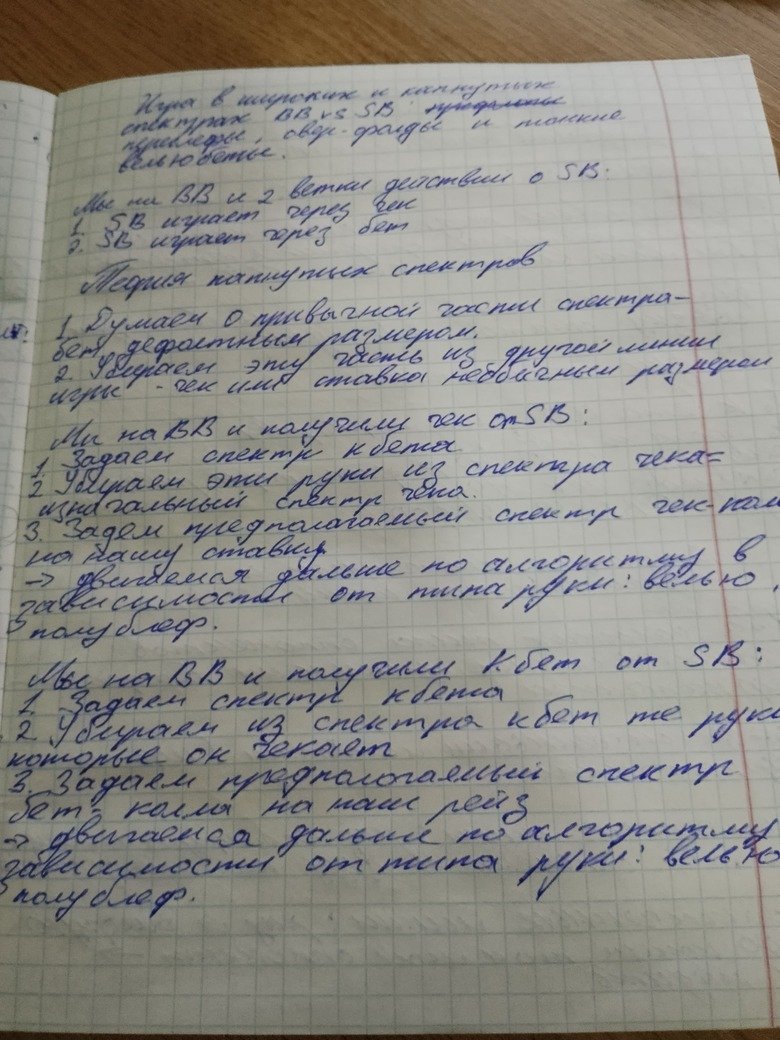 Игра в широких и капнутых
спектрах BB vs SB:
переблефы, овер-фолды и тонкие
велью беты.
Мы на BB и 2 ветки действий о SB:
1. SB играет через чек
2. SB играет через бет
Теория капнутых спектров
1. Думаем о привычной части спектра-
бет дефолтным размером.
2. Убираем эту часть из другой линии
игры - чек или ставка необычным размером
Мы на BB и получили чек от SB:
1. Задаем спектр кбета
2. Убираем эти руки из спектра чека=
изначальный спектр чека.
3. Задем предполагаемый спектр чек-кол
на нашу ставку.
→ двигаемся дальше по алгоритму в
зависимости от типа руки: велью,
полублеф.
Мы на BB и получили Кбет от SB:
1. Задаем спектр кбета
2. Убираем из спектра кбет те руки
которые он чекает
3. Задаем предполагаемый спектр
бет колла на наш рейз
→ двигаемся дальше по алгоритму
зависимости от типа руки: велью
полублеф.